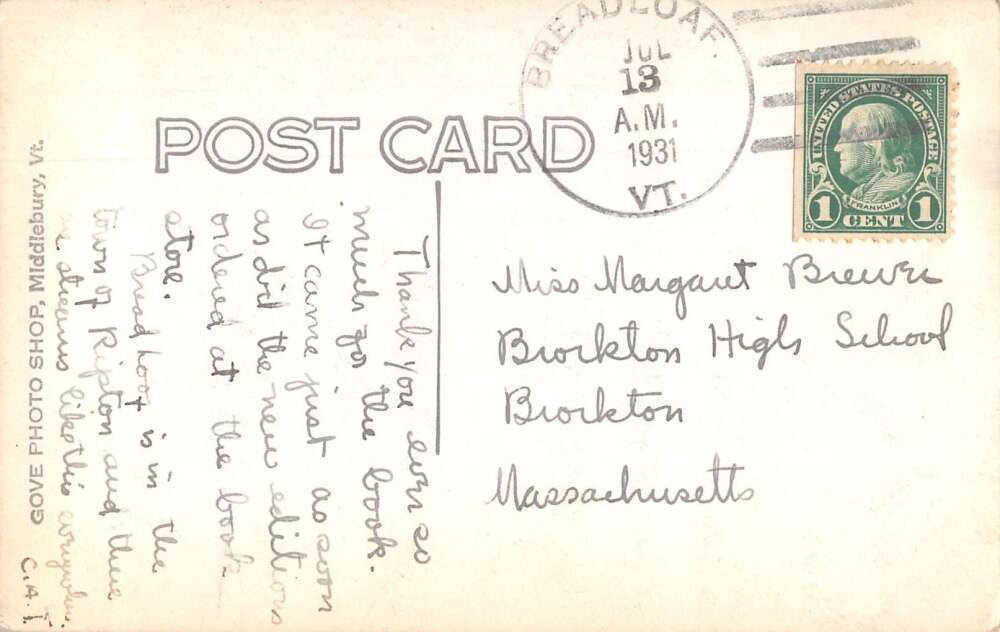 POST CARD
BREADLOAF.
JUL
13
A.M.
1931
VT.
UNITED STATES POSTAGE
FRANKLIN
1 CENT 1
Miss Margaret Brewer
Brockton High School
Brockton
Massachusetts
Thank you ever so
much for the book.
It came just as soon
as did the new editions
ordered at the book
store.
Bread Loaf is in the
town of Ripton and there
streams like this everywhere.
C.A.T.
GOVE PHOTO SHOP, Middlebury, Vt.